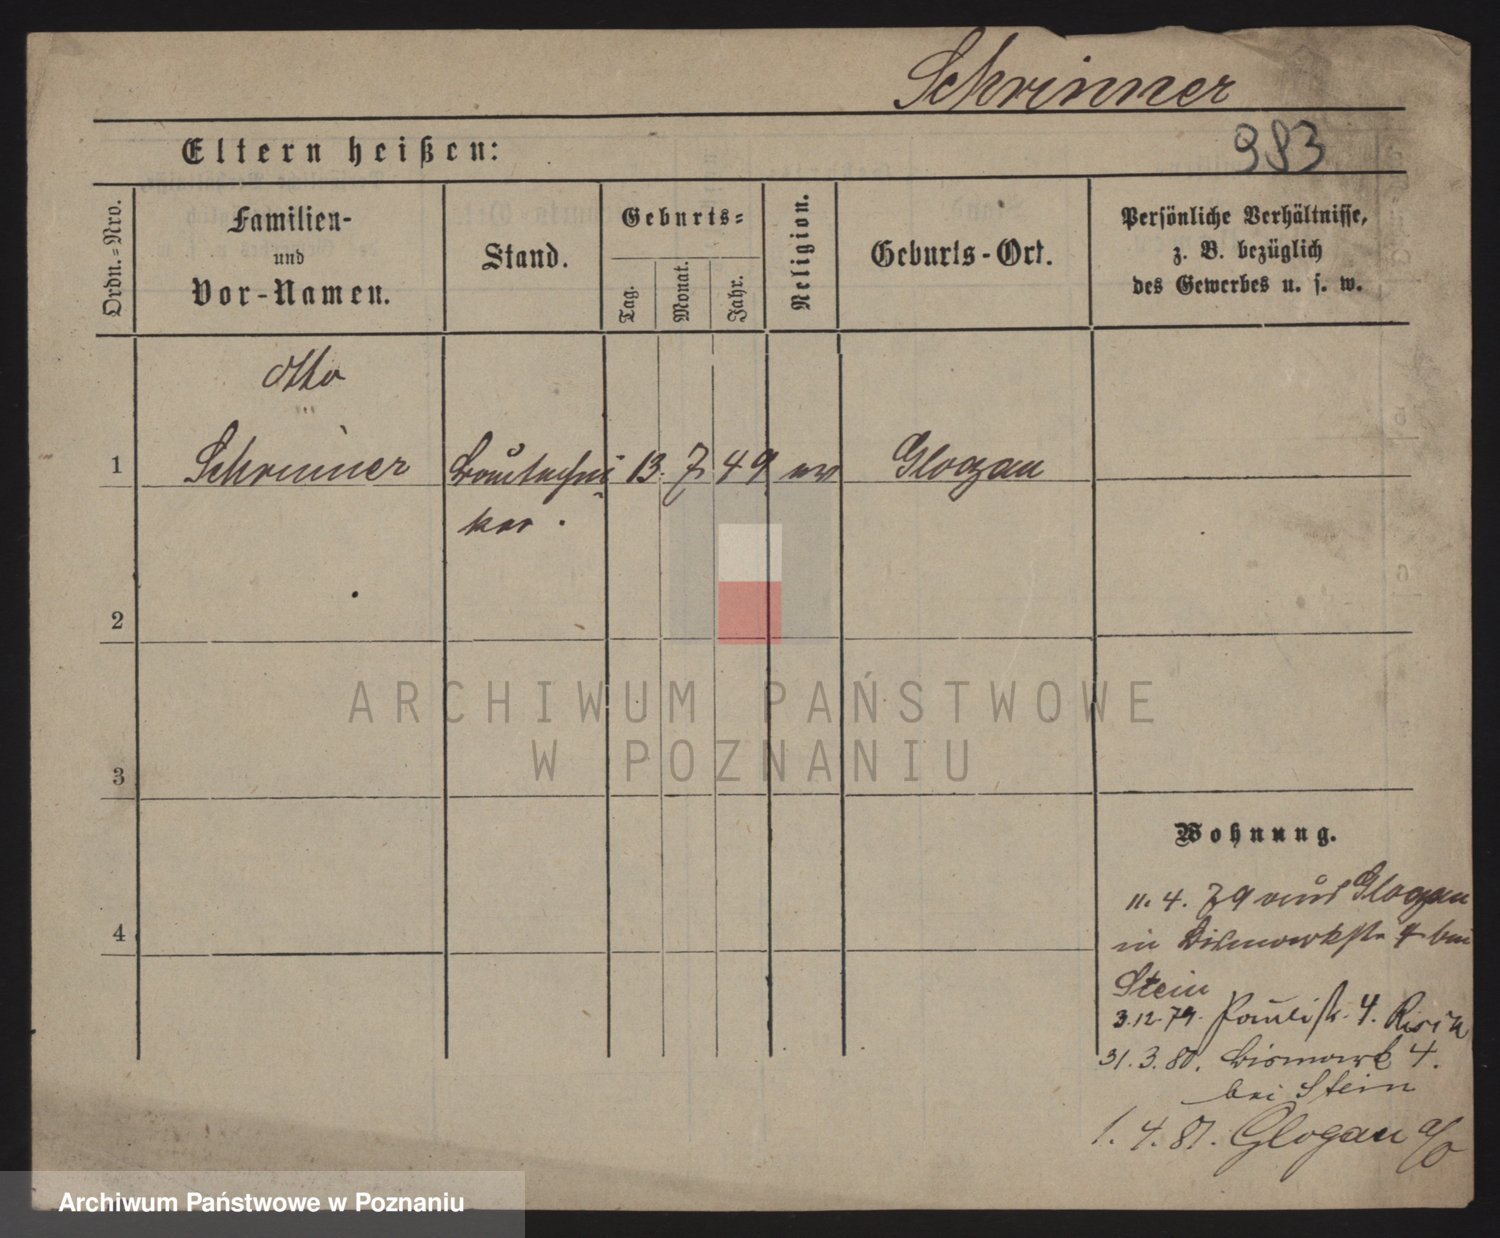 Schrinner
Eltern heißen:
983
Ordn.-Nro.
Familien-
und
Vor-Namen.
Stand.
Geburts-
Tag.
Monat.
Jahr.
Religion.
Geburts-Ort.
Persönliche Verhältnisse,
z. B. bezüglich
des Gewerbes u. s. w.
Otto
1 Schrinner Bautechni 13. 7 49 ev Glogau
ker.
2
ARCHIWUM PAŃSTWOWE
W POZNANIU
3
Wohnung.
11. 4. 79 aus Glogau
4
in Bismarckstr 4 bei
Stein
3.12.79. Paulistr. 4.
31.3.80. Bismark 4.
bei Stein
1. 4. 81. Glogau a/O
Archiwum Państwowe w Poznaniu